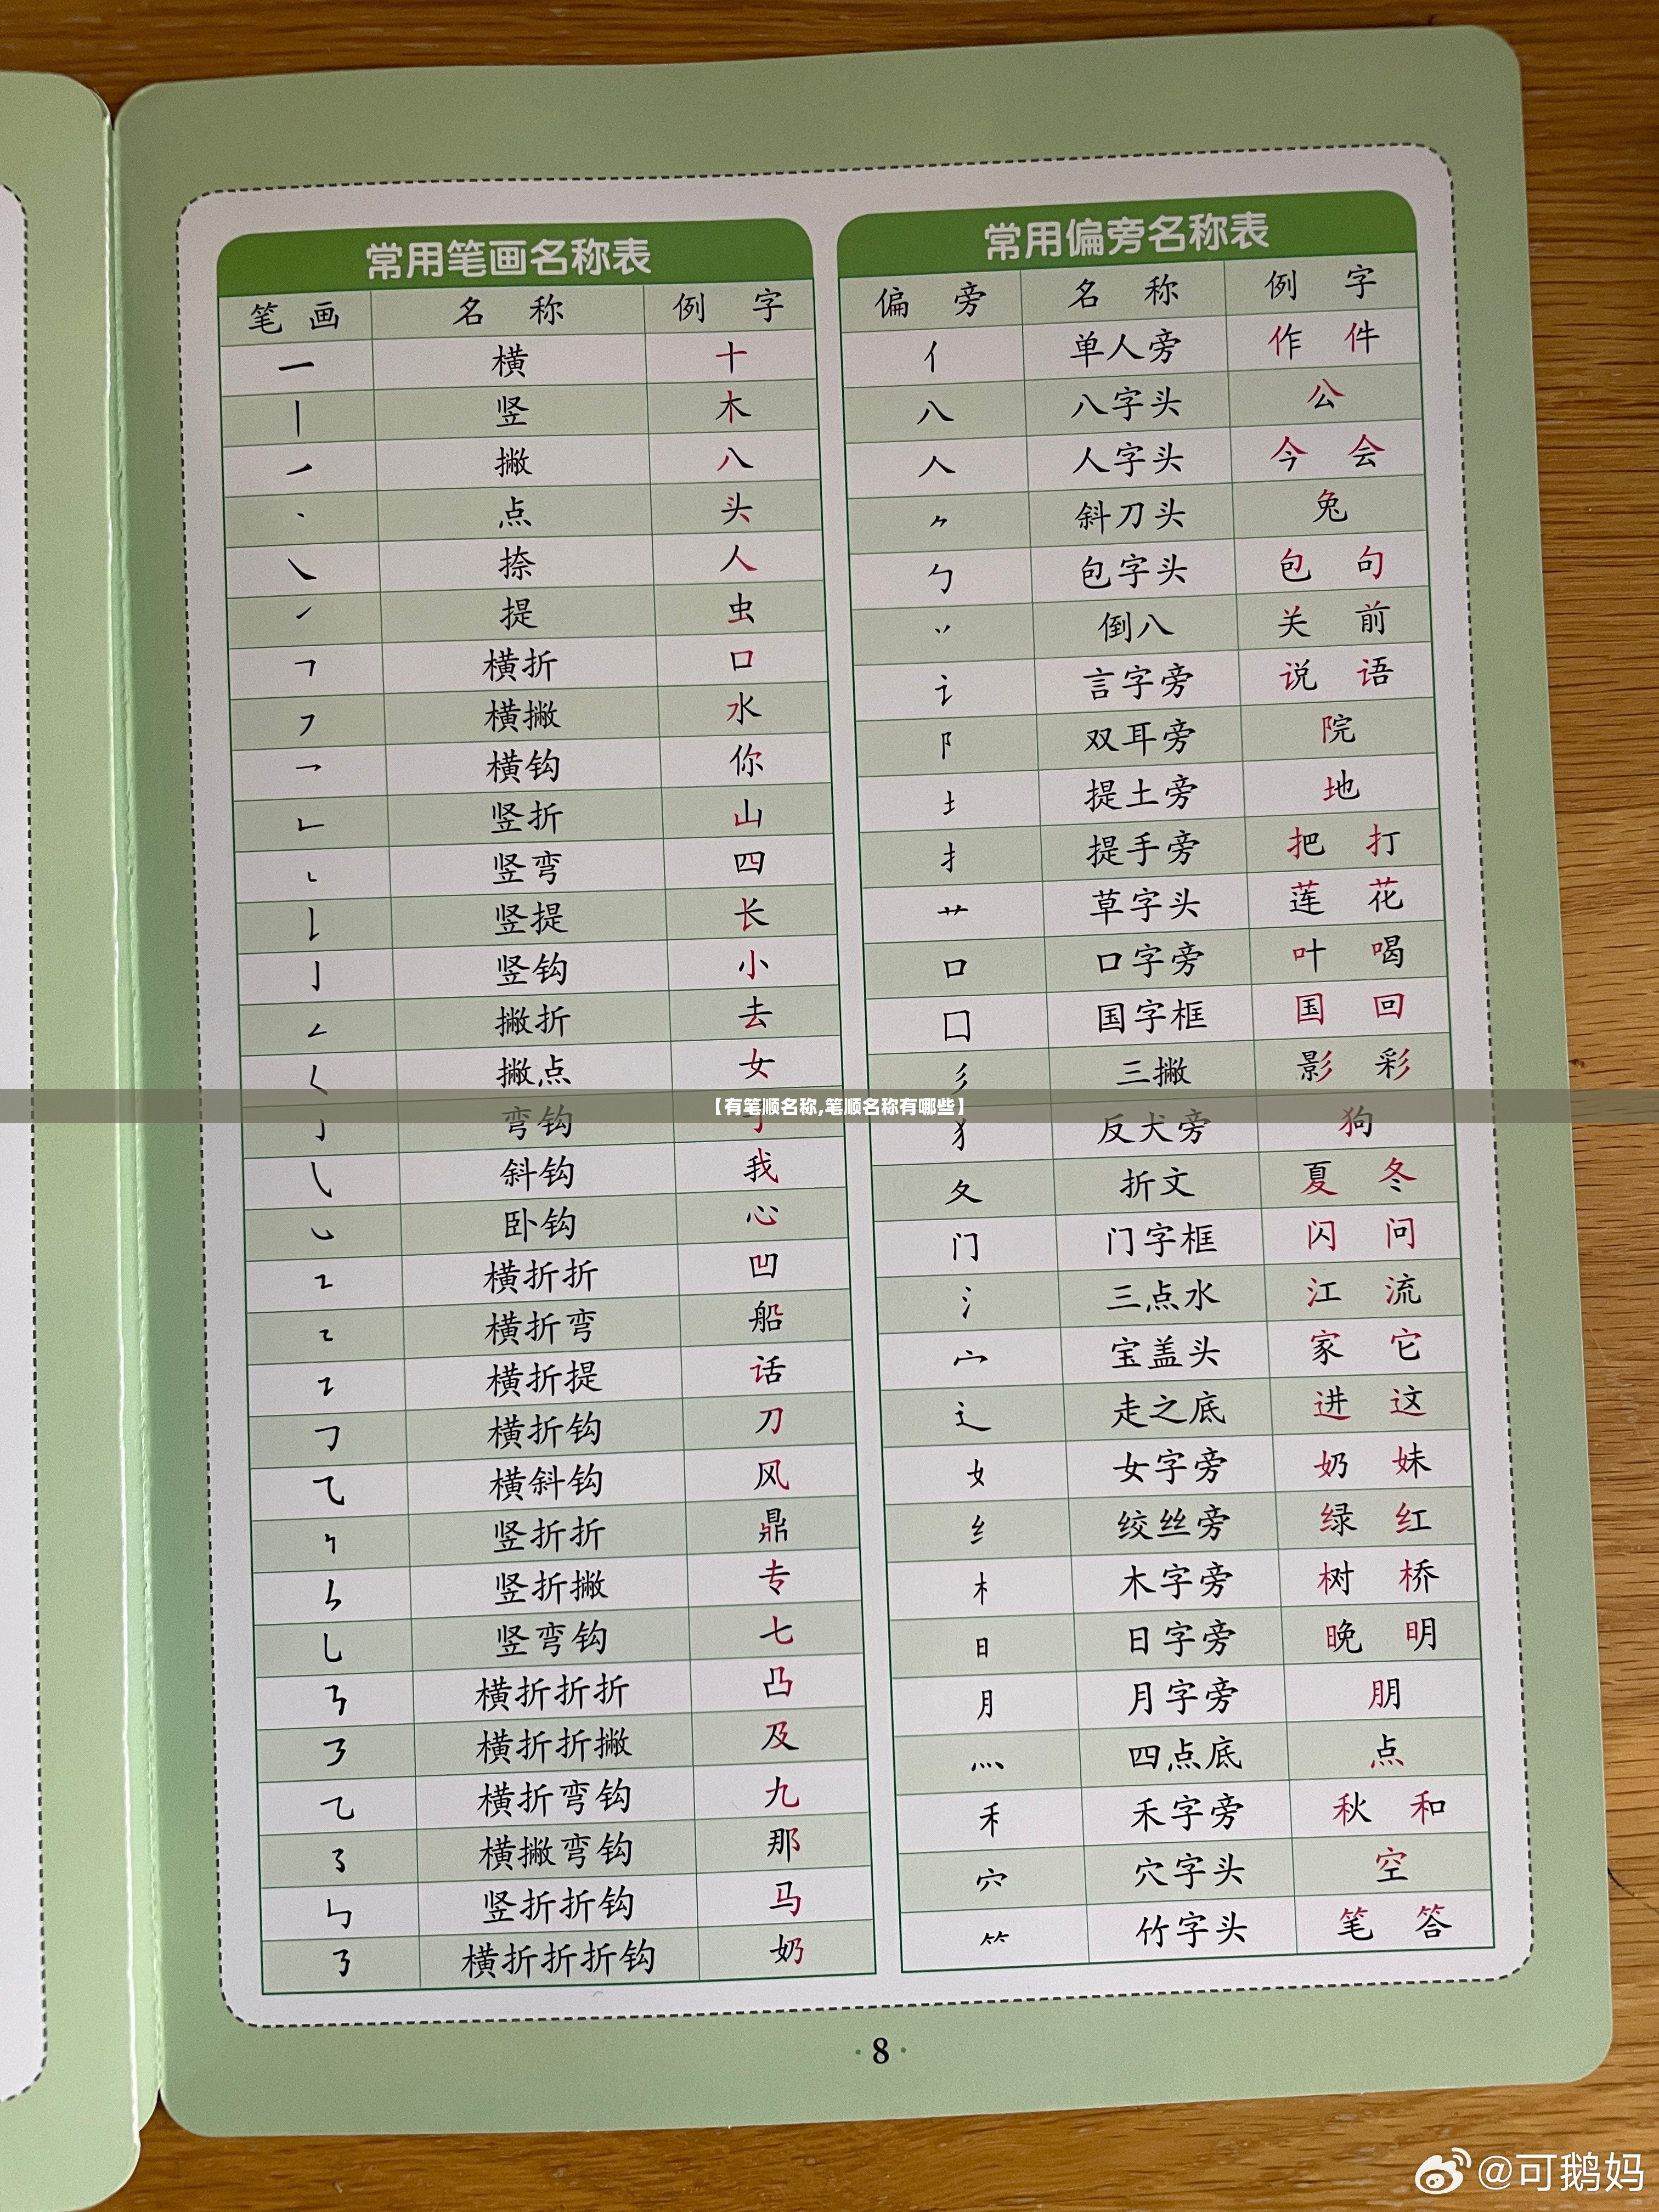 常用笔画名称表
笔画 名称 例字
一 横 十
丨 竖 木
㇒ 撇 八
丶 点 头
㇏ 捺 人
㇀ 提 虫
㇕ 横折 口
㇇ 横撇 水
㇖ 横钩 你
㇗ 竖折 山
㇄ 竖弯 四
㇙ 竖提 长
亅 竖钩 小
㇜ 撇折 去
㇛ 撇点 女
㇁ 弯钩
㇂ 斜钩 我
㇃ 卧钩 心
㇅ 横折折 凹
㇍ 横折弯 船
㇊ 横折提 话
㇆ 横折钩 刀
⺄ 横斜钩 风
㇞ 竖折折 鼎
ㄣ 竖折撇 专
乚 竖弯钩 七
㇎ 横折折折 凸
㇋ 横折折撇 及
乙 横折弯钩 九
㇌ 横撇弯钩 那
㇉ 竖折折钩 马
㇡ 横折折折钩 奶
常用偏旁名称表
偏旁 名称 例字
亻 单人旁 作 件
八 八字头 公
人 人字头 今 会
⺈ 斜刀头 兔
勹 包字头 包 句
丷 倒八 关 前
讠 言字旁 说 语
阝 双耳旁 院
土 提土旁 地
扌 提手旁 把 打
艹 草字头 莲 花
口 口字旁 叶 喝
囗 国字框 国 回
彡 三撇 影 彩
犭 反犬旁 狗
夂 折文 夏 冬
门 门字框 闪 问
氵 三点水 江 流
宀 宝盖头 家 它
辶 走之底 进 这
女 女字旁 奶 妹
纟 绞丝旁 绿 红
木 木字旁 树 桥
日 日字旁 晚 明
月 月字旁 朋
灬 四点底 点
禾 禾字旁 秋 和
穴 穴字头 空
⺮ 竹字头 笔 答
【有笔顺名称,笔顺名称有哪些】
·8·
@可鹅妈